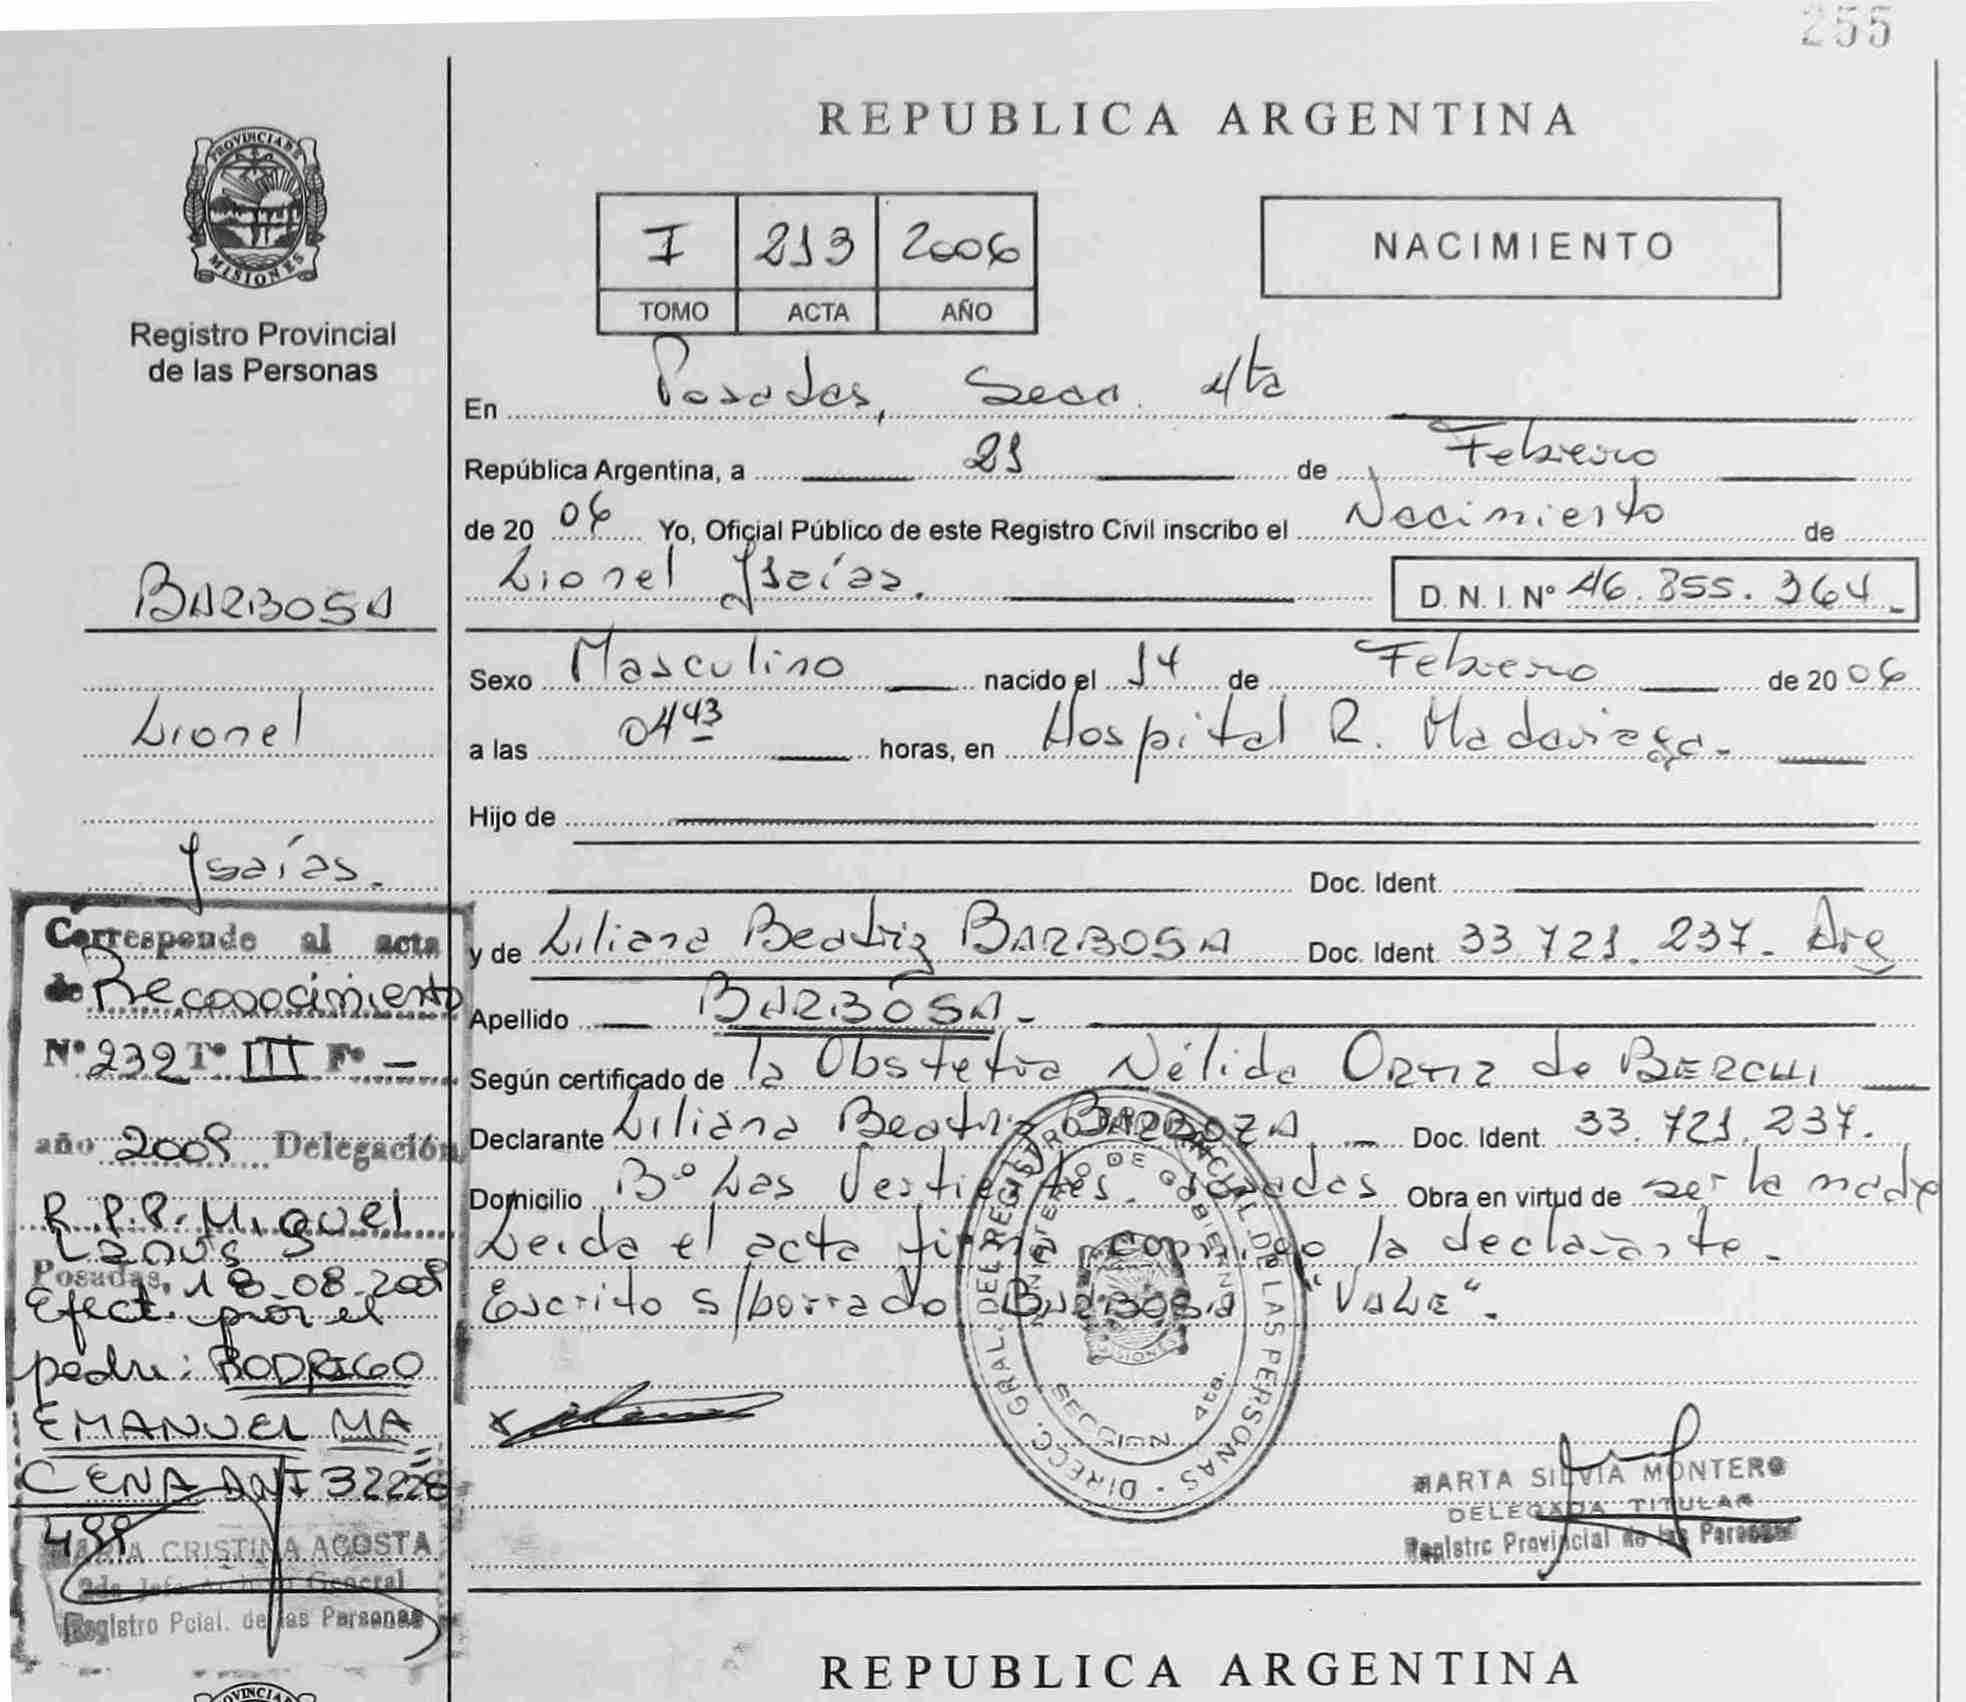 255
PROVINCIA DE
MISIONES
Registro Provincial
de las Personas
REPUBLICA ARGENTINA
I 213 2006
TOMO ACTA AÑO
NACIMIENTO
En Posadas, Secc. 4ta
República Argentina, a 21 de Febrero
de 2006 Yo, Oficial Público de este Registro Civil inscribo el Nacimiento de
Lionel Ysaías. D. N. I. N° 46.855.364.
Sexo Masculino nacido el 14 de Febrero de 2006
a las 04 43 horas, en Hospital R. Madariaga.
Hijo de
Doc. Ident
y de Liliana Beatriz BARBOSA Doc. Ident 33.721.237. Arg
Apellido BARBOSA.
Según certificado de la Obstetra Nélida ORTIZ de BERCHI
Declarante Liliana Beatriz BARBOZA. Doc. Ident. 33.721.237.
Domicilio B° Las Vertientes. Posadas Obra en virtud de ser la madre
Leida el acta firma conmigo la declarante.
Escrito s/borrado BARBOSA "VALE".
DIRECC. GRAL. DEL REGISTRO PROVINCIAL DE LAS PERSONAS
MINISTERIO DE GOBIERNO
SECCION 4ta.
MARTA SILVIA MONTERO
DELEGADA TITULAR
Registro Provincial de las Personas
BARBOSA
Lionel
Ysaías.
Corresponde al acta
de Reconocimiento
N° 232 T° III F° -
año 2009 Delegación
R.P.P. Miguel
Lanús S
Posadas, 18-08-2009
Efect. por el
padre: RODRIGO
EMANUEL MA
CENA DNI 32228
499
MARIA CRISTINA ACOSTA
Registro Pcial. de las Personas
REPUBLICA ARGENTINA